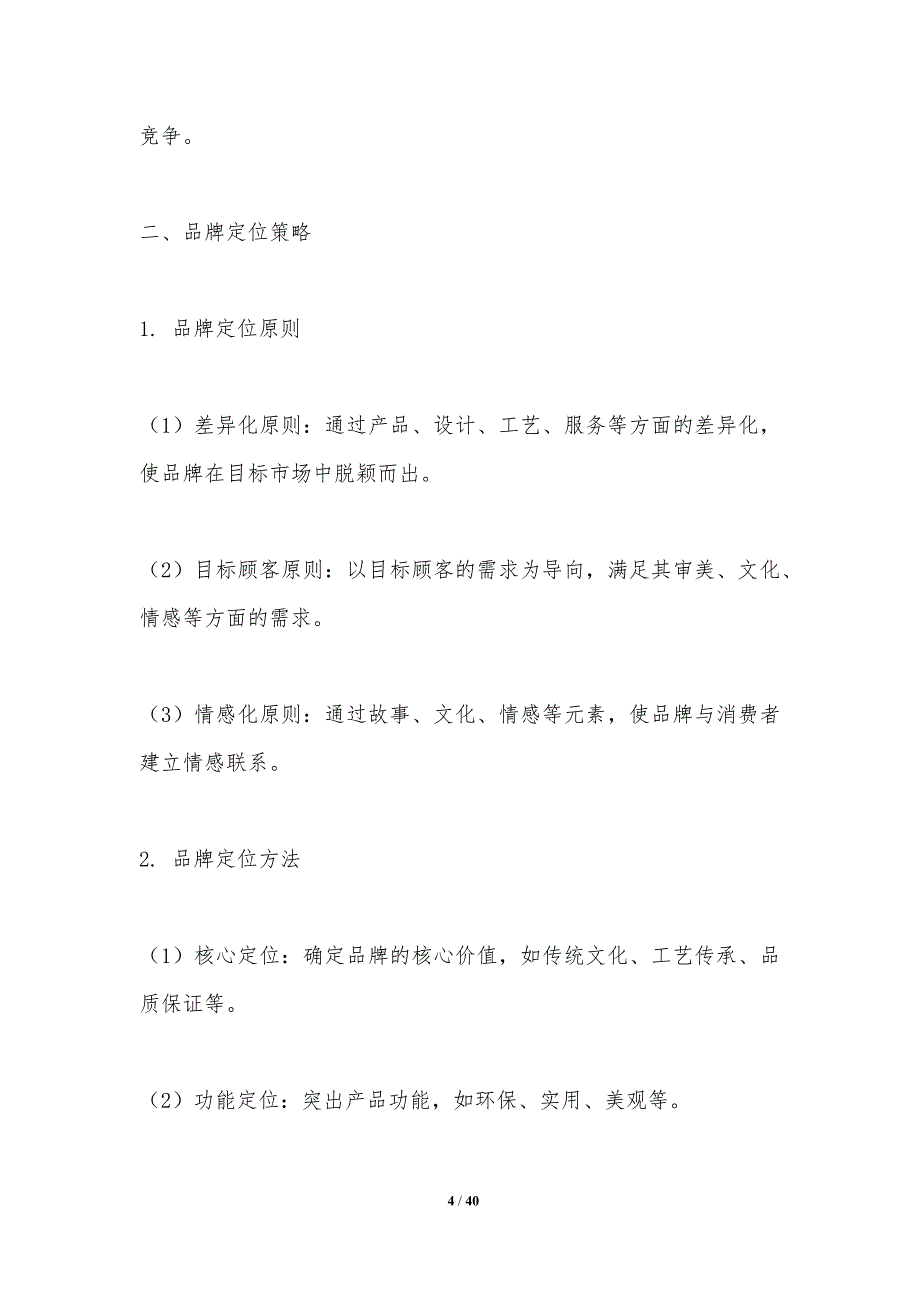 竞争。
二、品牌定位策略
1. 品牌定位原则
（1）差异化原则：通过产品、设计、工艺、服务等方面的差异化，
使品牌在目标市场中脱颖而出。
（2）目标顾客原则：以目标顾客的需求为导向，满足其审美、文化、
情感等方面的需求。
（3）情感化原则：通过故事、文化、情感等元素，使品牌与消费者
建立情感联系。
2. 品牌定位方法
（1）核心定位：确定品牌的核心价值，如传统文化、工艺传承、品
质保证等。
（2）功能定位：突出产品功能，如环保、实用、美观等。
4 / 40